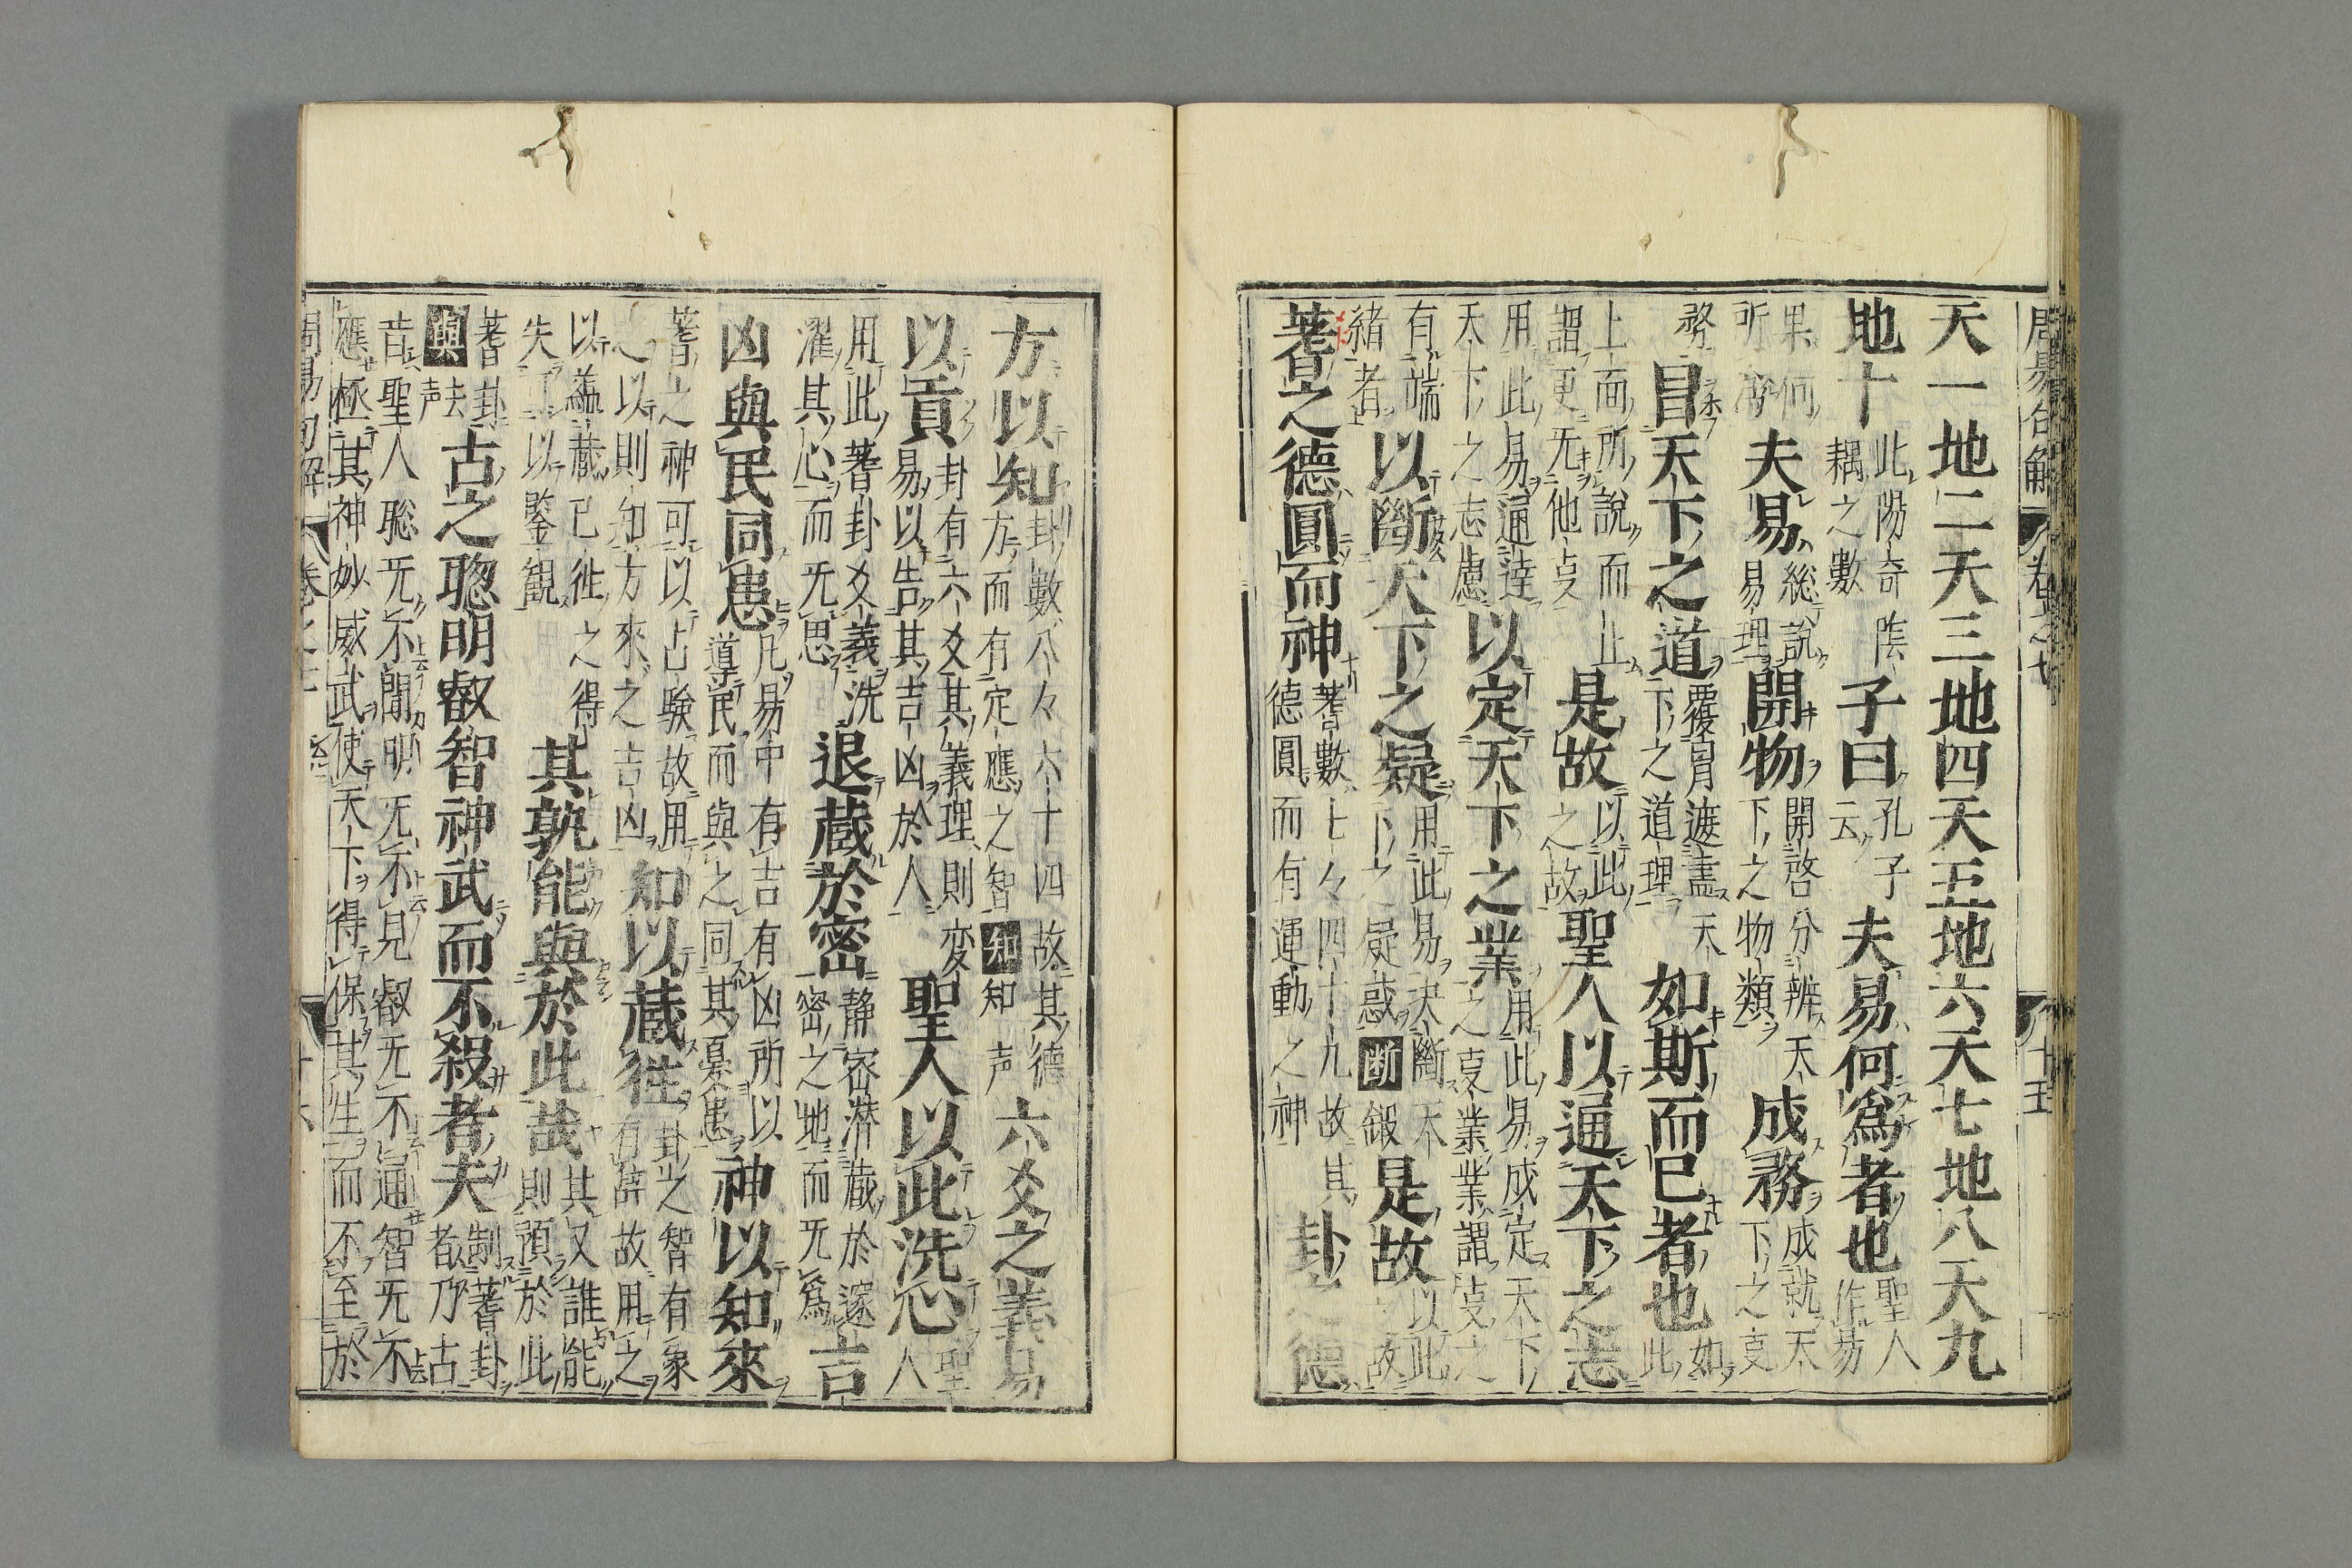 周易句解 卷之七 十五
天一地二天三地四天五地六天七地八天九
地十 此陽奇陰耦之數 子曰 孔子云 夫易何爲者也 聖人作易
果何所 夫易 総說易理 開物 開啓分辨天下之物類 成務 成就天下之㕝
務 冒天下之道 覆冒遮盖天下之道理 如斯而已者也 如此
上面所說而止謂更无他㕝 是故 以此之故 聖人以通天下之志
用此易通達天下之志慮 以定天下之業 用此易成定天下之㕝業業謂㕝之
有端緒者 以斷天下之疑 用此易決斷天下之疑惑 断 鍛 是故 以此故
蓍之德圓而神 蓍數七々四十九故其德圓而有運動之神 卦之德
方以知 卦數八々六十四故其德方而有定應之智 知 知声 六爻之義易
以貢 卦有六爻其義理則変易以告其吉凶於人 聖人以此洗心 聖人
用此蓍卦爻義洗濯其心而无思 退蔵於密 静密潜蔵於邃密之地而无爲 吉
凶與民同患 凡易中有吉有凶所以導民而與之同其憂患 神以知來
蓍之神可以占験故用之以則知方來之吉凶 知以蔵往 卦之智有象有辞故用之
以蘊蔵已往之得失可以鑒観 其孰能與於此哉 其又誰能則預於此
蓍卦 與 去声 古之聡明叡智神武而不殺者夫 制蓍卦者乃古
昔聖人聡无不聞明无不見叡无不通智无不
應極其神妙威武使天下得保其生而不至於
周易句解 卷之七 十六